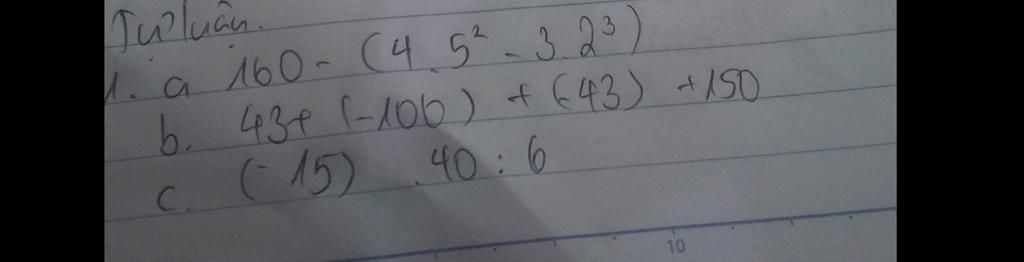 Tự luận.
1. a 160 - (4.5² - 3.2³)
b. 43+ (-100) + (-43) +150
c. (-15) .40 : 6
10